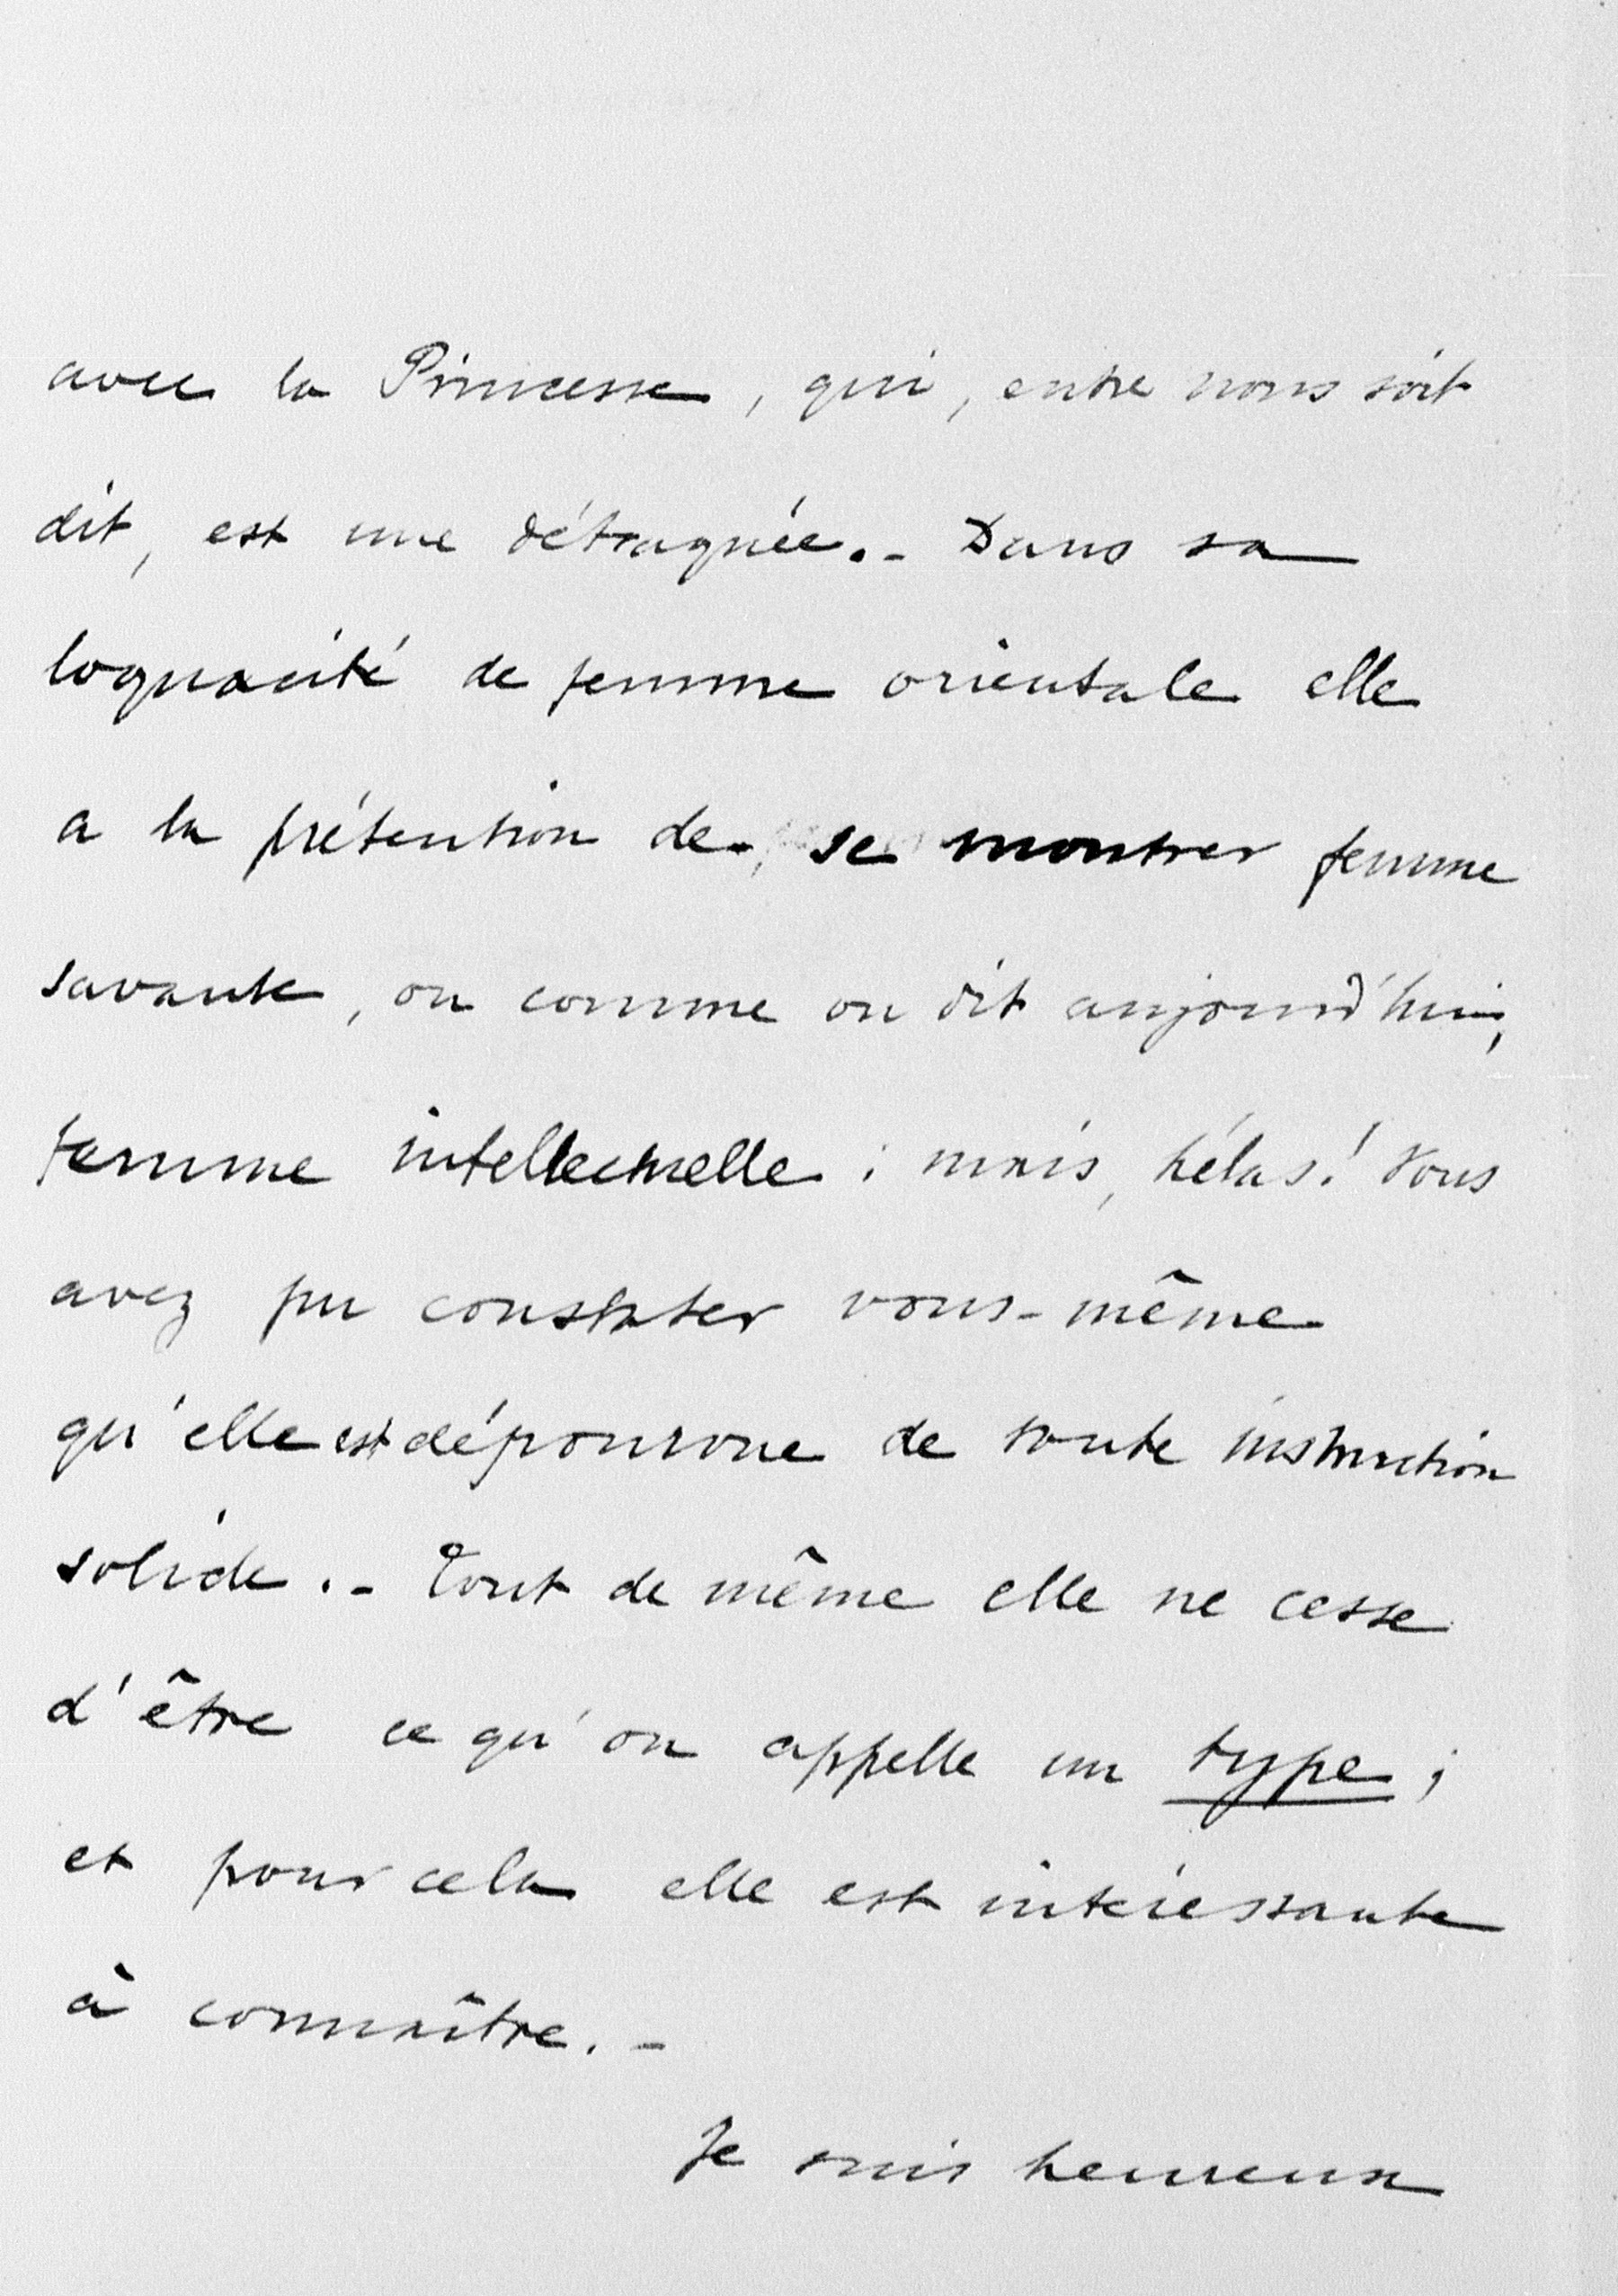 avec la Princesse, qui, entre nous soit
dit, est une détraquée. - Dans sa
loquacité de femme orientale elle
a la prétention de se montrer femme
savante, ou comme on dit aujourd'hui,
femme intellectuelle ; mais, hélas ! Vous
avez pu constater vous-même
qu'elle est dépourvue de toute instruction
solide. - Tout de même elle ne cesse
d'être ce qu'on appelle un type ;
et pour cela elle est intéressante
à connaître. -
Je suis heureux